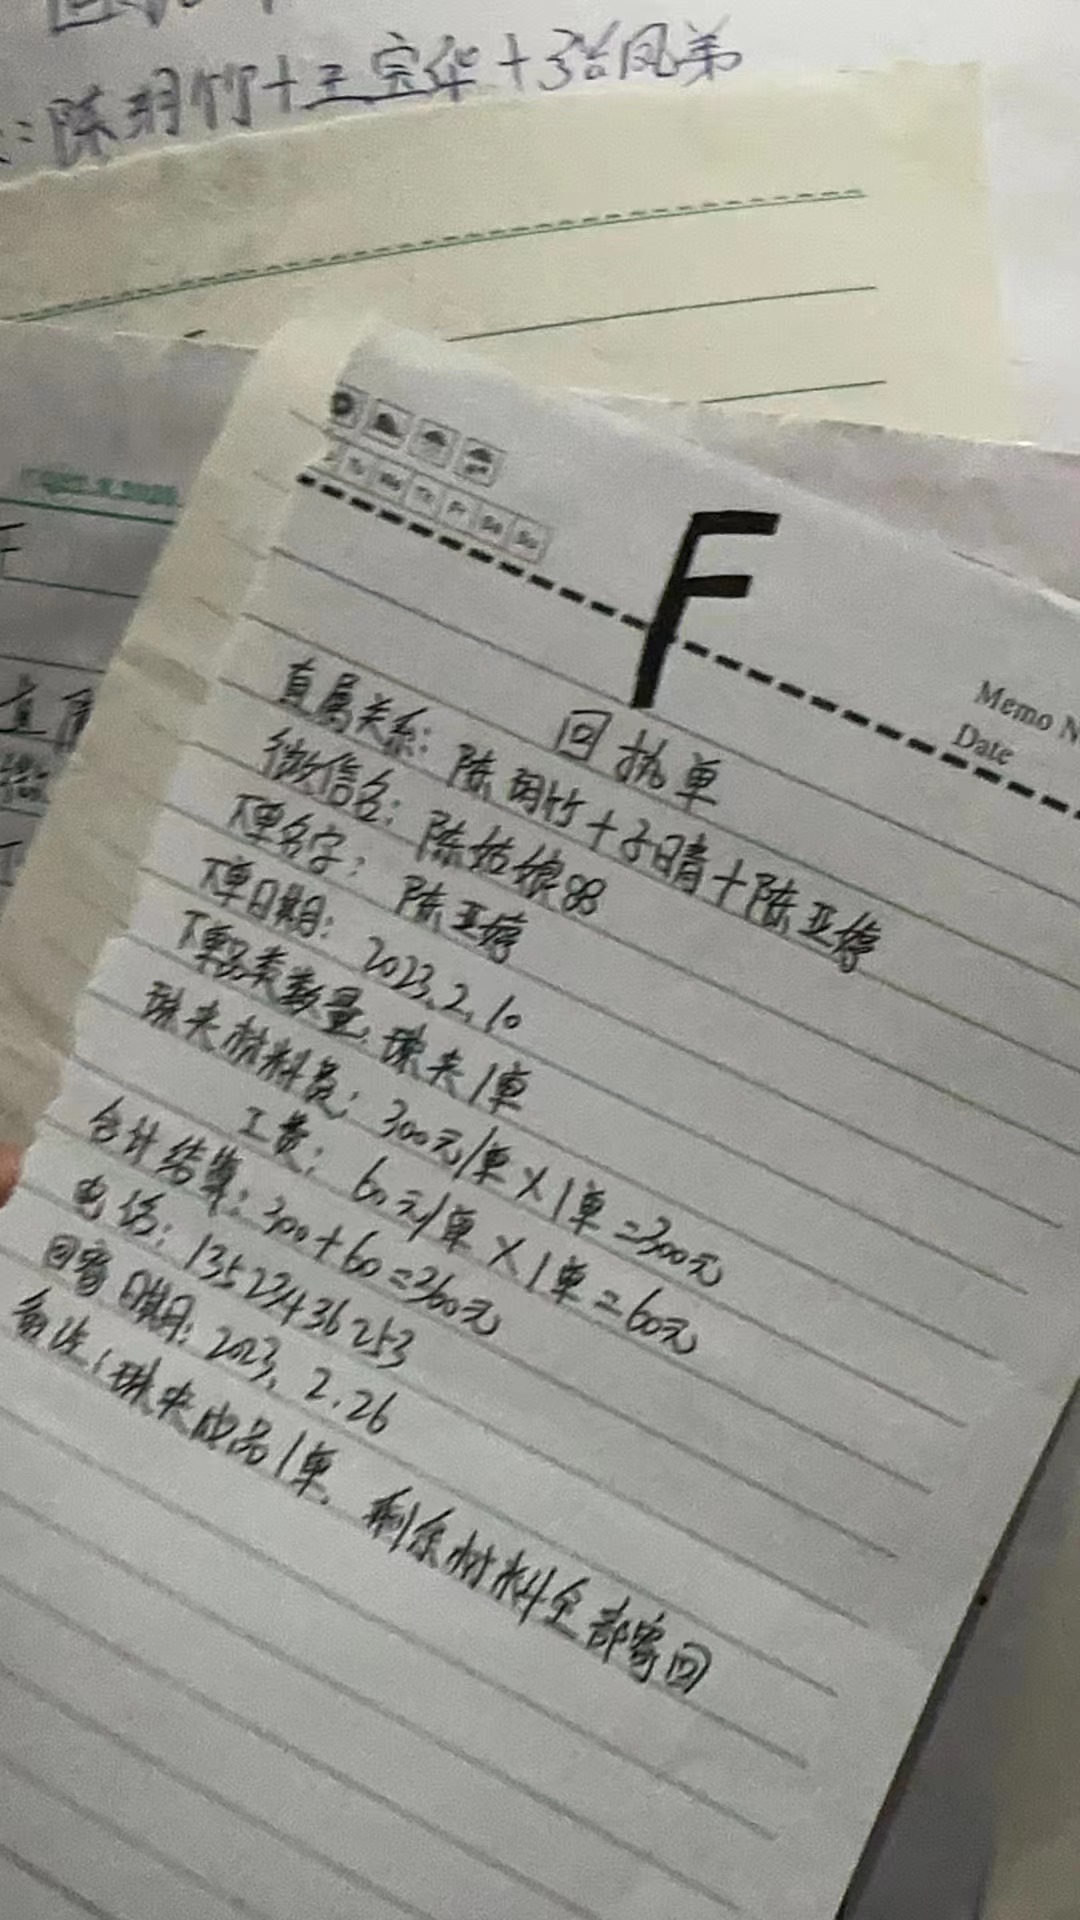 陈玥竹+王宗华+张凤弟
F
Memo N
Date
回执单
直属关系:陈玥竹+子晴+陈亚婷
微信名:陈姑娘88
下单名字:陈亚婷
下单日期:2023.2.10
下单品类数量:珠夹1单
珠夹材料费:300元/单×1单=300元
工费:60元/单×1单=60元
合计结算:300+60=360元
电话:13522436253
回寄日期:2023.2.26
备注:珠夹成品1单,剩余材料全部寄回